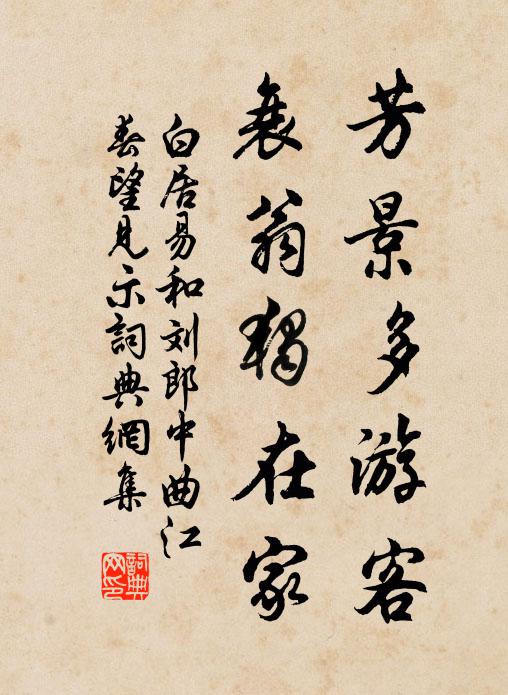 芳景多游客
衰翁獨在家
白居易和刘郎中曲江
春望見示詞典網集
詞典
网印